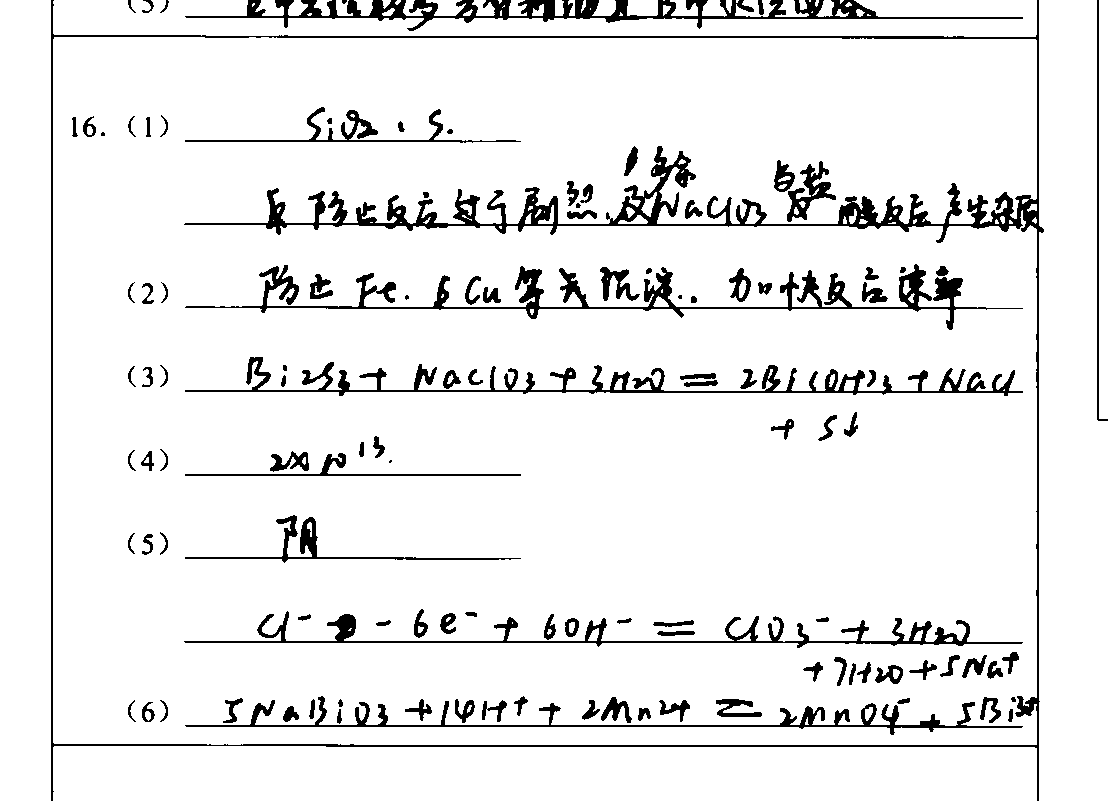 (5)
16. (1) SiO2、S.
防止反应过于剧烈、及NaClO3 酸反应产生杂质
多余 与盐
(2) 防止Fe. Cu等 沉淀. 加快反应速率
(3) Bi2S3 + NaClO3 + 3H2O = 2Bi(OH)3 + NaCl
+ S↓
(4) 2×10^13.
(5) 阴
Cl⁻ - 6e⁻ + 6OH⁻ = ClO3⁻ + 3H2O
+ 7H2O + 5Na⁺
(6) 5NaBiO3 + 14H⁺ + 2Mn2+ = 2MnO4⁻ + 5Bi3+